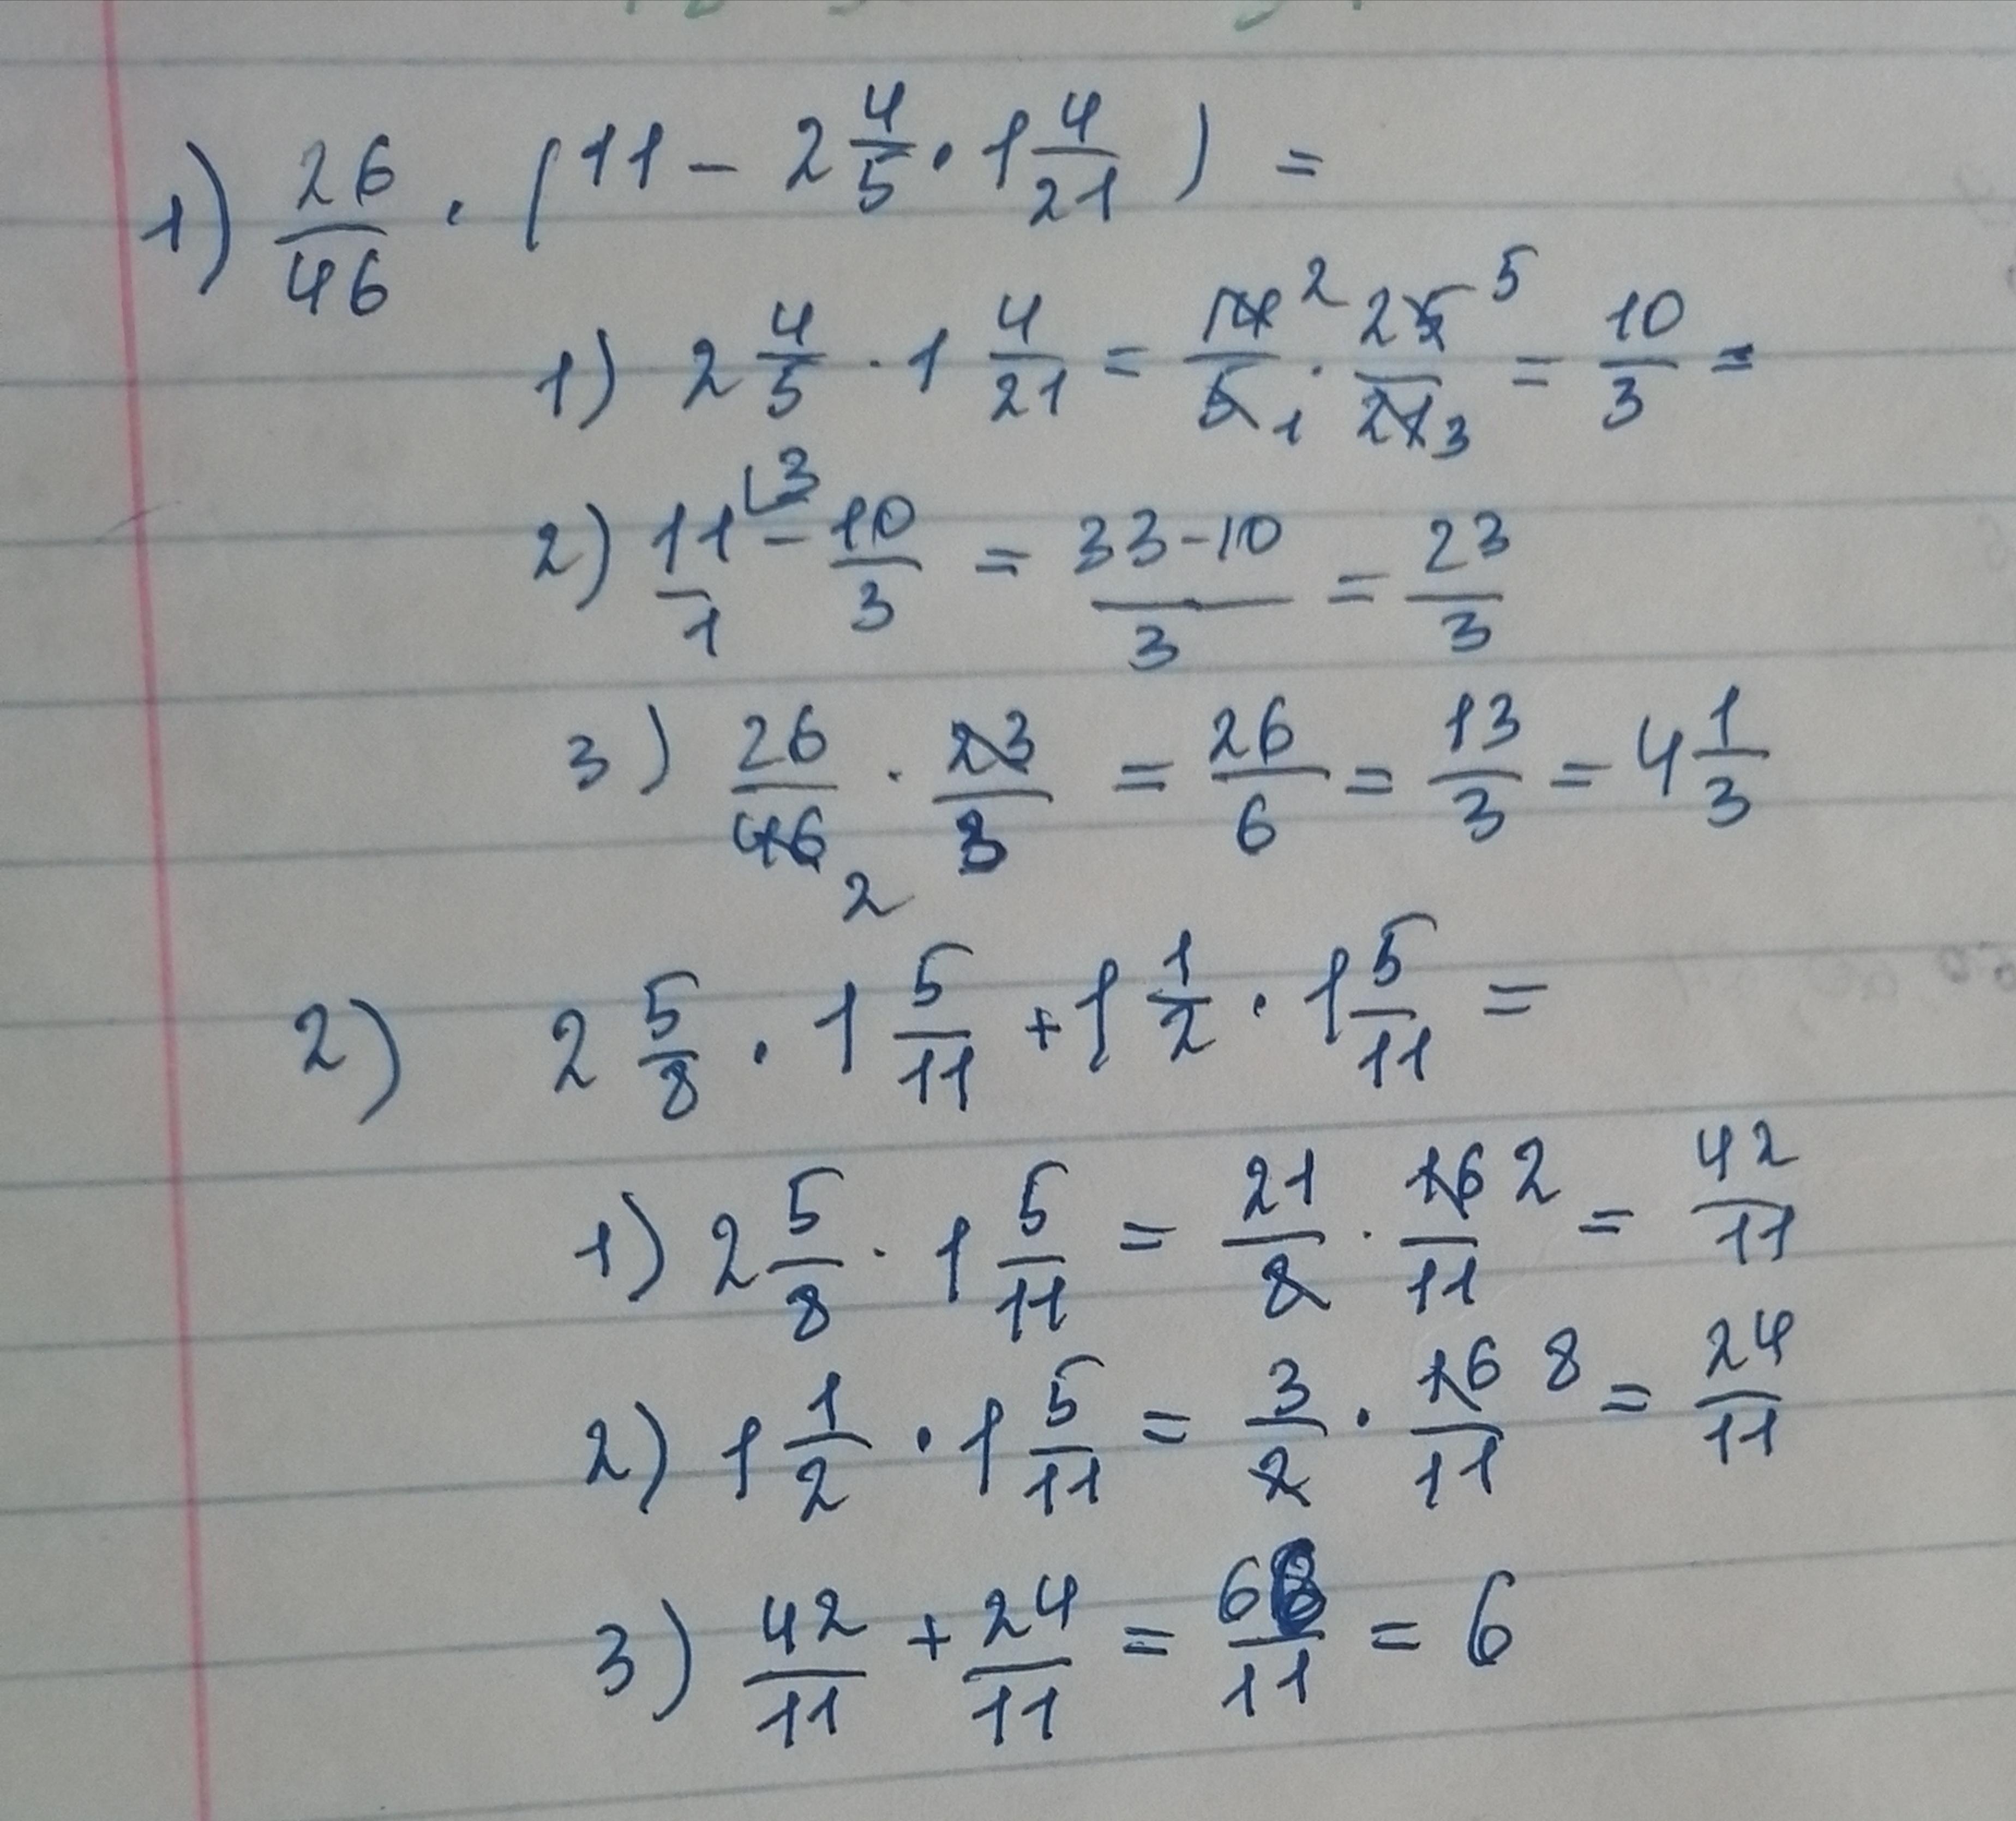 1) 26/46 · (11 - 2 4/5 · 1 4/21) =
1) 2 4/5 · 1 4/21 = 14 2/5 1 · 25 5/21 3 = 10/3 =
2) 11/1 3 - 10/3 = 33-10/3 = 23/3
3) 26/46 2 · 23/3 = 26/6 = 13/3 = 4 1/3
2) 2 5/8 · 1 5/11 + 1 1/2 · 1 5/11 =
1) 2 5/8 · 1 5/11 = 21/8 · 16 2/11 = 42/11
2) 1 1/2 · 1 5/11 = 3/2 · 16 8/11 = 24/11
3) 42/11 + 24/11 = 66/11 = 6